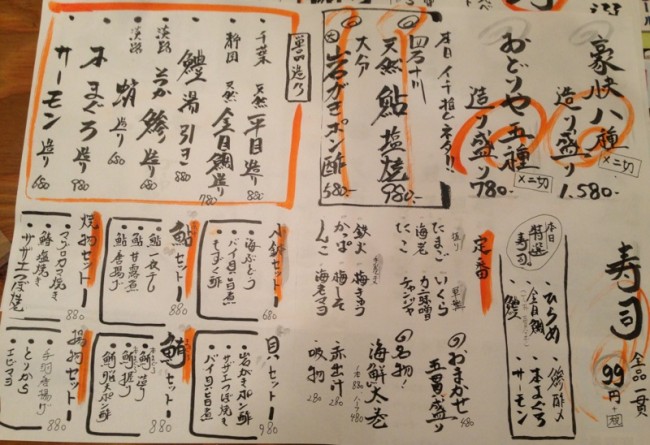 豪快八種
造り盛り
×二切
1.580-
おどりや五種
造り盛り
×二切
780-
本日イチ推しネタ!!
四万十川
天然鮎塩焼
980-
大分
岩がきポン酢
580-
単品造り
千葉 天然平目造り 680
静岡 天然金目鯛造り 780
鱧湯引き 880
淡路 鯵造り 680
淡路 蛸造り 680
本まぐろ造り 680
サーモン造り 680
寿司
全品一貫
99円+税
本日
特選
寿司
ひらめ
金目鯛
鱧
〆鯵
本まぐろ
サーモン
定番
たまご
海老
たこ
いくら
鉄火
かっぱ
しんこ
梅きゅう
梅しそ
海老マヨ
おまかせ
五貫盛り
480
名物!
海鮮太巻
赤出汁 280
吸物 280
八幡セット 680
海ぶどう
バイ貝旨煮
もずく酢
鮎セット 880
鮎一夜干し
鮎甘露煮
鮎唐揚げ
焼物セット 880
マグロカマ焼き
鯖塩焼き
サザエつぼ焼
貝セット 980
岩がきポン酢
サザエつぼ焼き
バイ貝旨煮
鮪セット 880
鮪造り
鮪握り
揚物セット 880
手羽唐揚げ
とりから
エビマヨ